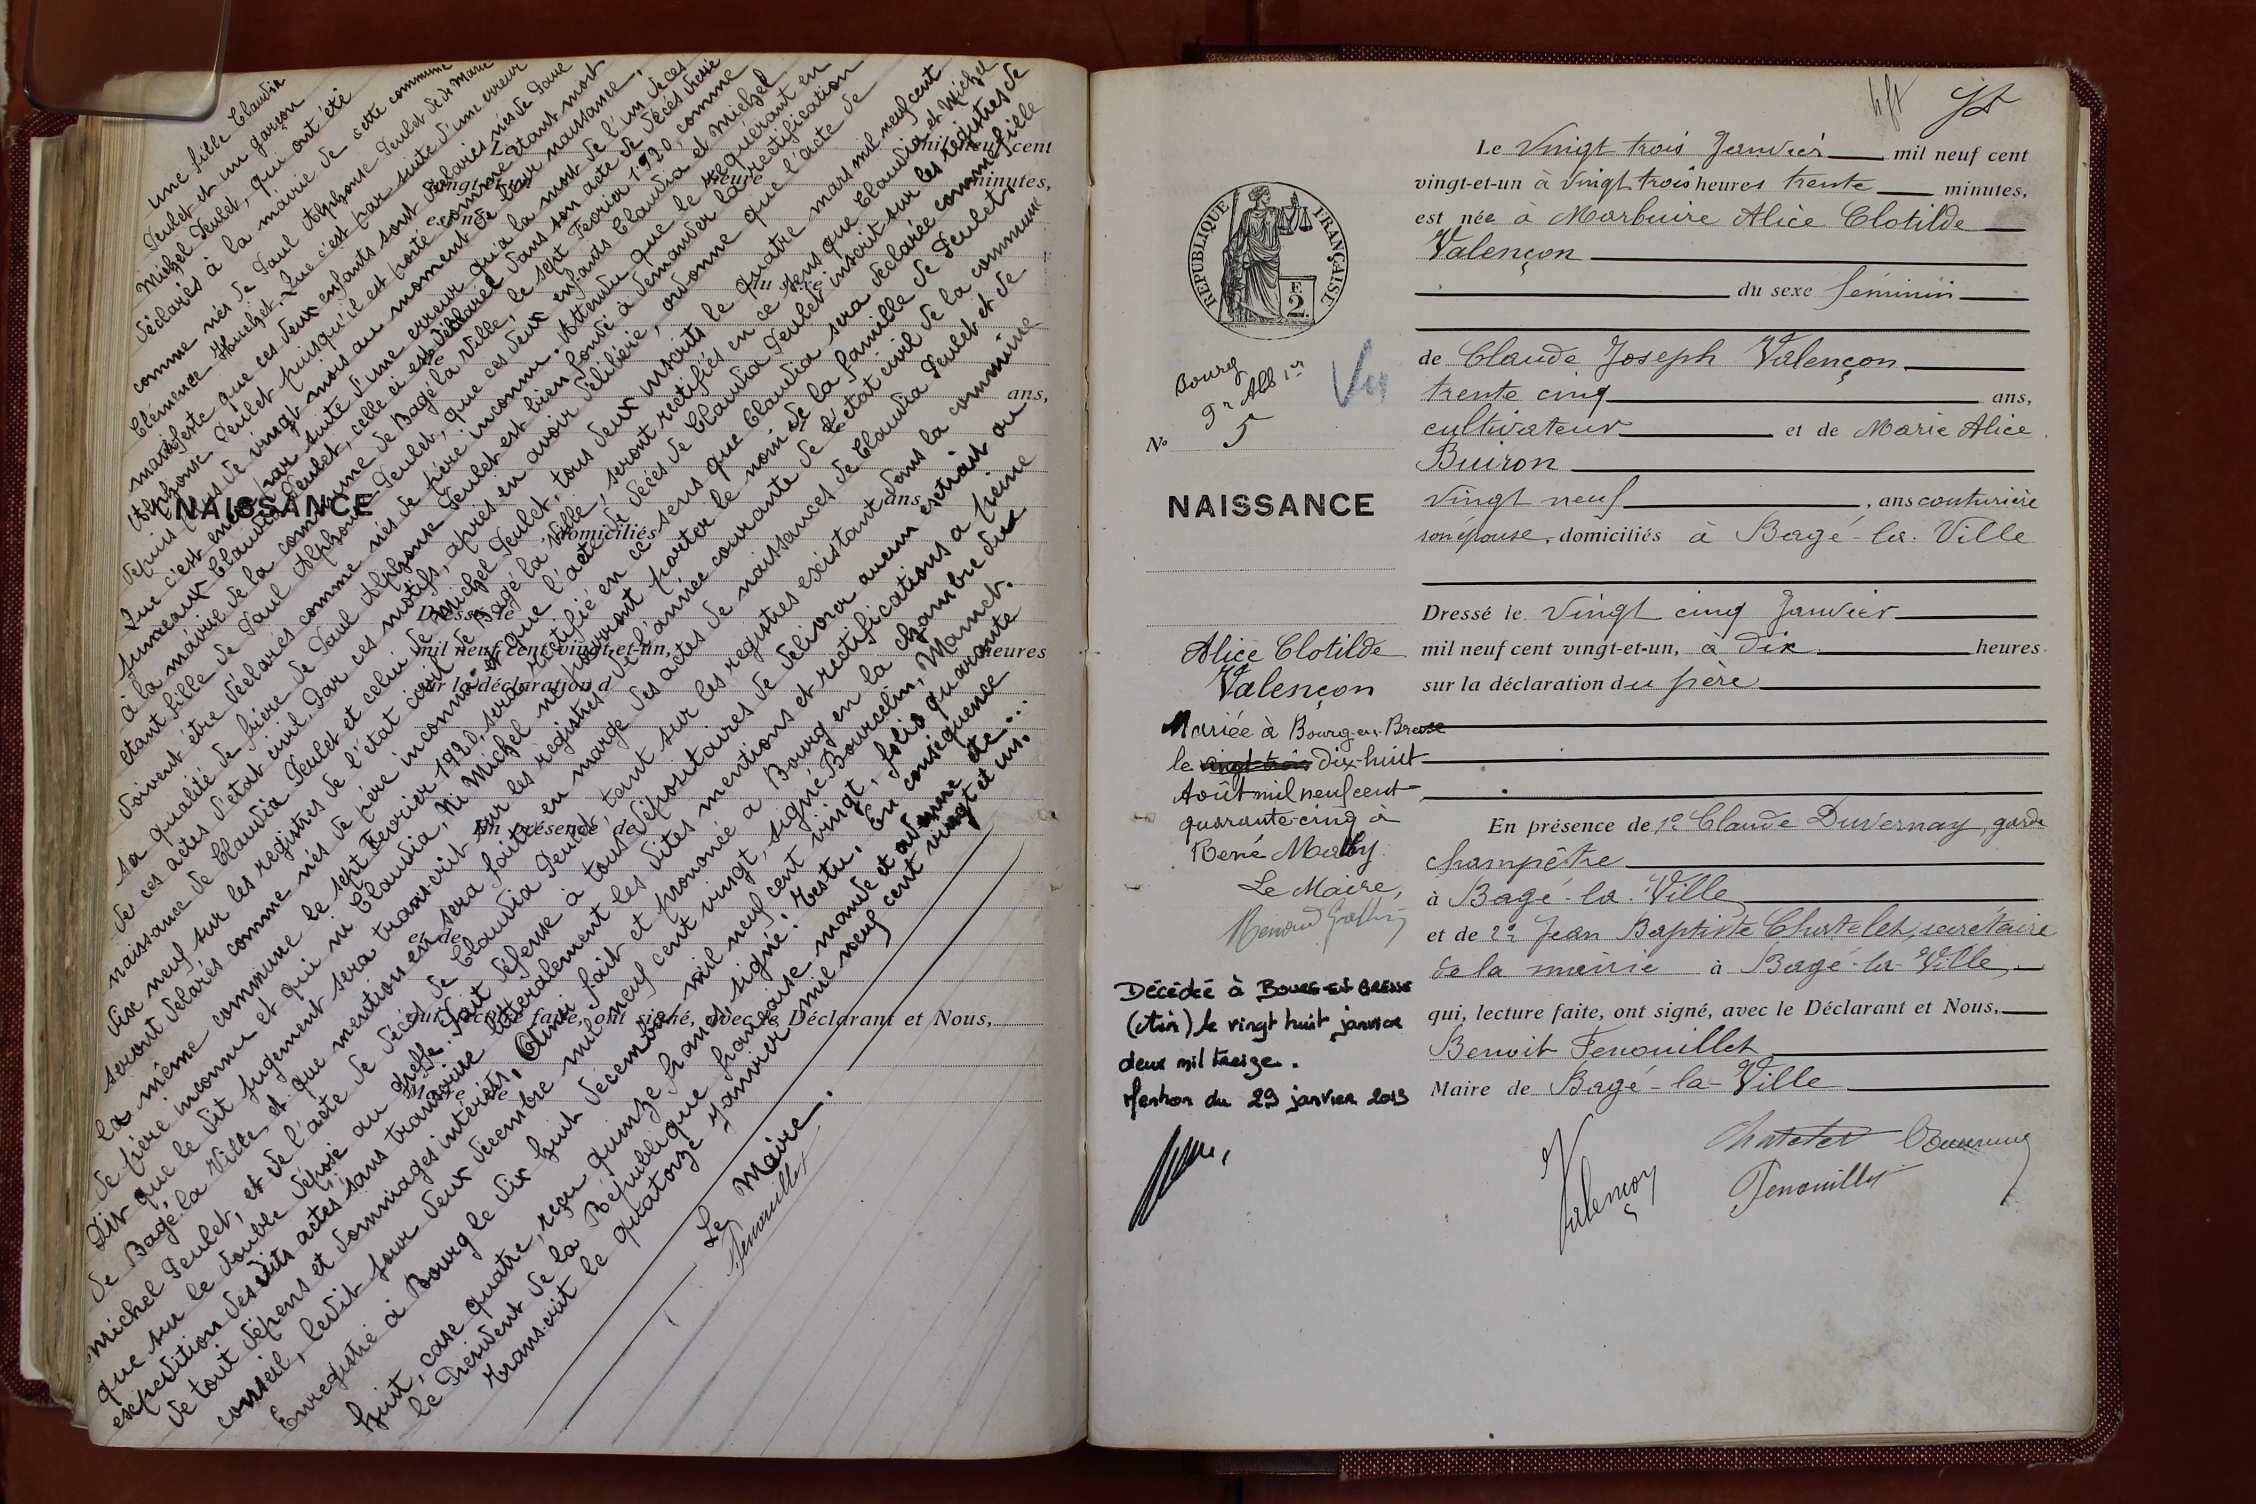 une fille Claudia
Peulet et un garçon
Michel Peulet, qui ont été
déclarés à la mairie de cette commune
comme nés de Paul Alphonse Peulet et de Marie
Clémence Que c'est par suite d'une erreur
manifeste que ces deux enfants sont déclarés nés de Paul
Alphonse Peulet puisqu'il est porté comme étant mort
depuis plus de vingt mois au moment de leur naissance,
Que c'est encore par suite d'une erreur qu'à la mort de l'un de ces
jumeaux Claudia Peulet, celle ci est déclaré dans son acte de décès dressé
à la mairie de la commune de Bagé la Ville, le sept Fevrier 1920, comme
étant fille de Paul Alphonse Peulet, que ces deux enfants Claudia et Michel
doivent être déclarés comme nés de père inconnu. Attendu que le requérant en
sa qualité de frère de Paul Alphonse Peulet est bien fondé à demander la rectification
de ces actes d'état civil. Par ces motifs, après en avoir délibéré, ordonne que l'acte de
naissance de Claudia Peulet et celui de Michel Peulet, tous deux inscrits le quatre mars mil neuf cent
dix neuf sur les registres de l'état civil de Bagé la Ville, seront rectifiés en ce sens que Claudia et Michel
seront déclarés comme nés de père inconnu et que l'acte de décès de Claudia Peulet inscrit sur les registres de
la même commune le sept Fevrier 1920, sera rectifié en ce sens que Claudia sera déclarée comme fille
de père inconnu et qui ni Claudia, ni Michel ne pourront porter le nom de la famille de Peulet.
Dit que le dit jugement sera transcrit sur les registres de l'année courante de l'état civil de la commune
de Bagé la Ville, et que mention en sera faite en marge des actes de naissances de Claudia Peulet et de
Michel Peulet, et de l'acte de décès de Claudia Peulet, tant sur les registres existant dans la commune
que sur le double déposé au greffe. Fait défense à tous dépositaires de délivrer aucun extrait ou
expédition desdits actes sans transcrire littéralement les dites mentions et rectifications a peine
de tout dépens et dommages intérêts. Ainsi fait et prononcé à Bourg en la chambre du
conseil, ledit jour deux décembre mil neuf cent vingt, signé Bourcelin, Mamet.
Enregistré à Bourg le dix huit décembre mil neuf cent vingt, folio quarante
huit, case quatre, reçu quinze francs signé: Testu. En conséquence
le Président de la République française mande et ordonne etc...
transcrit le quatorze janvier mil neuf cent vingt et un.
Le Maire.
Fenouillet
NAISSANCE
Le mil neuf cent
vingt-et-un heure minutes,
est né
du sexe
de
ans,
ans
domiciliés
Dressé le
mil neuf cent vingt-et-un, heures
sur la déclaration d
En présence de
et de
qui, lecture faite, ont signé, avec le Déclarant et Nous,
Maire de
RÉPUBLIQUE FRANÇAISE
2F.
Bourg
Vu
No 5
NAISSANCE
Alice Clotilde
Valençon
Mariée à Bourg-en-Bresse
le vingt-trois dix-huit
Août mil neuf cent
quarante-cinq à
René
Le Maire,
Décédée à BOURG-EN-BRESSE
(Ain) le vingt huit janvier
deux mil treize.
Mention du 29 janvier 2013
Le Vingt trois Janvier mil neuf cent
vingt-et-un à vingt trois heures trente minutes,
est née à Marbuire Alice Clotilde
Valençon
du sexe féminin
de Claude Joseph Valençon
trente cinq ans,
cultivateur et de Marie Alice
Buiron
vingt neuf, ans couturière
son épouse, domiciliés à Bagé-la-Ville
Dressé le vingt cinq Janvier
mil neuf cent vingt-et-un, à dix heures
sur la déclaration du père
En présence de 1º Claude Duvernay, garde
champêtre
à Bagé-la-Ville
et de 2º Jean Baptiste Chatelet, secrétaire
de la mairie à Bagé-la-Ville
qui, lecture faite, ont signé, avec le Déclarant et Nous,
Benoit Fenouillet
Maire de Bagé-la-Ville
Valençon
Chatelet Duvernay
Fenouillet